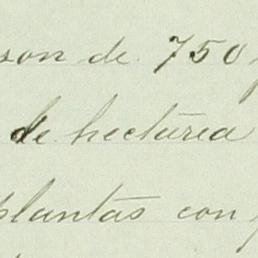 son de 750
de hectárea
plantas con